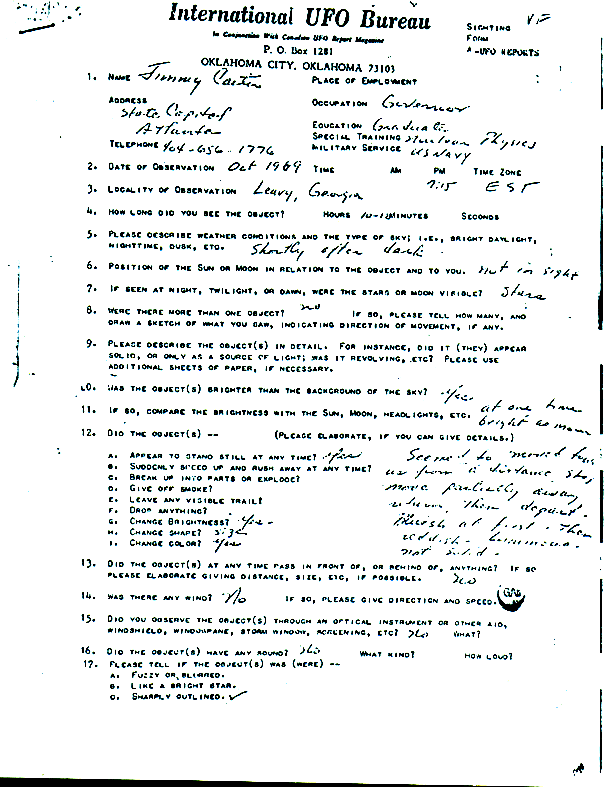 International UFO Bureau
In Conjunction With Canadian UFO Report Magazine
P. O. Box 1281
OKLAHOMA CITY, OKLAHOMA 73103
SIGHTING
FORM
-UFO REPORTS
1. NAME Jimmy Carter PLACE OF EMPLOYMENT
ADDRESS OCCUPATION Governor
State Capitol
Atlanta EDUCATION Graduate
SPECIAL TRAINING Nuclear Physics
TELEPHONE 404-656-1776 MILITARY SERVICE US NAVY
2. DATE OF OBSERVATION Oct 1969 TIME AM PM TIME ZONE
7:15 EST
3. LOCALITY OF OBSERVATION Leary, Georgia
4. HOW LONG DID YOU SEE THE OBJECT? HOURS 10-12 MINUTES SECONDS
5. PLEASE DESCRIBE WEATHER CONDITIONS AND THE TYPE OF SKY; I.E., BRIGHT DAYLIGHT,
NIGHTTIME, DUSK, ETC. Shortly after dark.
6. POSITION OF THE SUN OR MOON IN RELATION TO THE OBJECT AND TO YOU. not in sight
7. IF SEEN AT NIGHT, TWILIGHT, OR DAWN, WERE THE STARS OR MOON VISIBLE? Stars
8. WERE THERE MORE THAN ONE OBJECT? no IF SO, PLEASE TELL HOW MANY, AND
DRAW A SKETCH OF WHAT YOU SAW, INDICATING DIRECTION OF MOVEMENT, IF ANY.
9. PLEASE DESCRIBE THE OBJECT(S) IN DETAIL. FOR INSTANCE, DID IT (THEY) APPEAR
SOLID, OR ONLY AS A SOURCE OF LIGHT; WAS IT REVOLVING, ETC? PLEASE USE
ADDITIONAL SHEETS OF PAPER, IF NECESSARY.
10. WAS THE OBJECT(S) BRIGHTER THAN THE BACKGROUND OF THE SKY? Yes
11. IF SO, COMPARE THE BRIGHTNESS WITH THE SUN, MOON, HEADLIGHTS, ETC. at one time
bright as moon
12. DID THE OBJECT(S) -- (PLEASE ELABORATE, IF YOU CAN GIVE DETAILS.)
A. APPEAR TO STAND STILL AT ANY TIME? yes Seemed to move
B. SUDDENLY SPEED UP AND RUSH AWAY AT ANY TIME? us from a distance, stop
C. BREAK UP INTO PARTS OR EXPLODE? move partially away
D. GIVE OFF SMOKE?
E. LEAVE ANY VISIBLE TRAIL? return, then depart.
F. DROP ANYTHING? Bluish at first - then
G. CHANGE BRIGHTNESS? yes
H. CHANGE SHAPE? size reddish - luminous -
I. CHANGE COLOR? yes not solid -
13. DID THE OBJECT(S) AT ANY TIME PASS IN FRONT OF, OR BEHIND OF, ANYTHING? IF SO
PLEASE ELABORATE GIVING DISTANCE, SIZE, ETC, IF POSSIBLE. no
14. WAS THERE ANY WIND? No IF SO, PLEASE GIVE DIRECTION AND SPEED.
15. DID YOU OBSERVE THE OBJECT(S) THROUGH AN OPTICAL INSTRUMENT OR OTHER AID,
WINDSHIELD, WINDOWPANE, STORM WINDOW, SCREENING, ETC? No WHAT?
16. DID THE OBJECT(S) HAVE ANY SOUND? No WHAT KIND? HOW LOUD?
17. PLEASE TELL IF THE OBJECT(S) WAS (WERE) --
A. FUZZY OR BLURRED.
B. LIKE A BRIGHT STAR.
C. SHARPLY OUTLINED. ✓